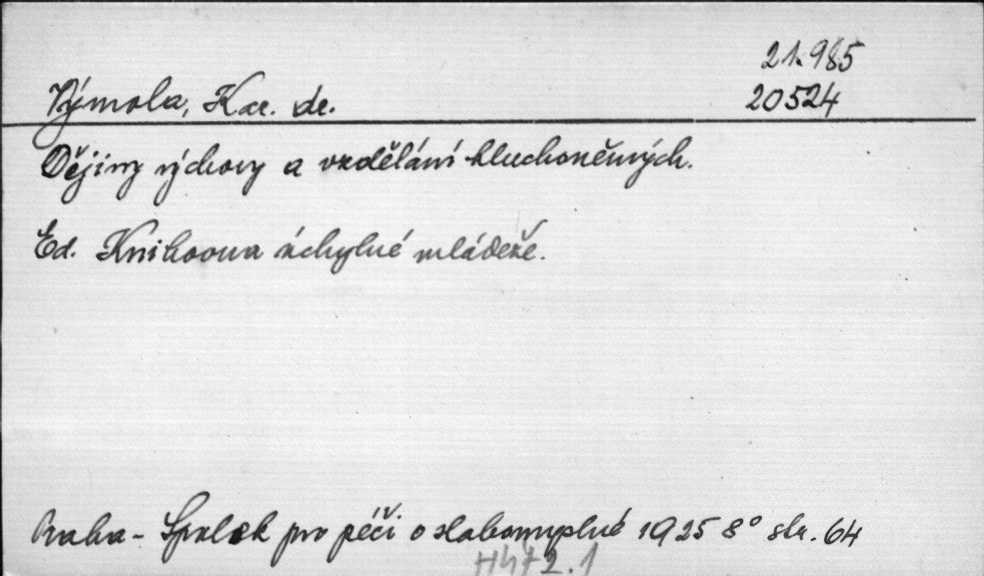 21.985
Výmola, Kar. dr. 20524
Dějiny výchovy a vzdělání hluchoněmých.
Ed. Knihovna úchylné mládeže.
Praha - Spolek pro péči o slabomyslné 1925 8° str. 64
H472.1